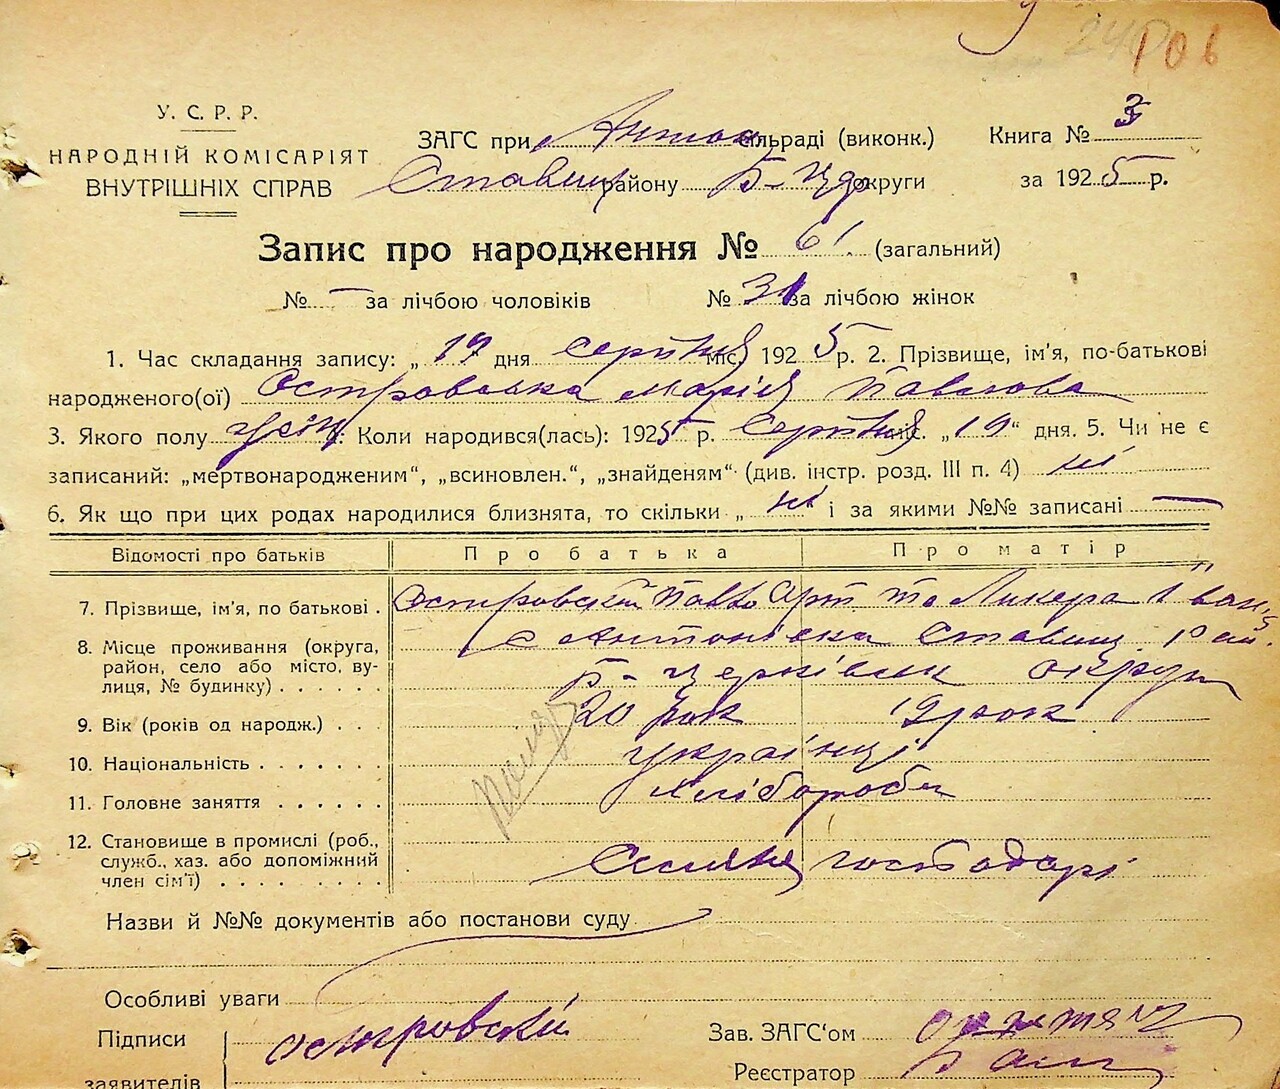 106
У. С. Р. Р.
НАРОДНІЙ КОМІСАРІЯТ
ВНУТРІШНІХ СПРАВ
ЗАГС при Антон сільраді (виконк.) Книга № 3
Ставищ району Б-Цер округи за 1925 р.
Запис про народження № 61 (загальний)
№ - за лічбою чоловіків № 31 за лічбою жінок
1. Час складання запису: „19 дня серпня міс. 1925 р. 2. Прізвище, ім'я, по-батькові
народженого(ої) Островська Марія Павлова
3. Якого полу жін 4. Коли народився(лась): 1925 р. Серпня міс. „19“ дня. 5. Чи не є
записаний: „мертвонародженим“, „всиновлен.“, „знайденям“ (див. інстр. розд. III п. 4) ні
6. Як що при цих родах народилися близнята, то скільки „ ні і за якими №№ записані —
Відомості про батьків Про батька Про матір
7. Прізвище, ім'я, по батькові . Островський Павло Арт та Ликера Іван
8. Місце проживання (округа, район, село або місто, вулиця, № будинку) . . . . . . с Антоновка Ставищ. рай.
Б-церківськ округи
9. Вік (років од народж.) . . . 20 рок 19 рок
10. Національність . . . . . . українці
11. Головне заняття . . . . . . хлібороби
12. Становище в промислі (роб., служб., хаз. або допоміжний член сім'ї) . . . . . . . . господарі
Назви й №№ документів або постанови суду
Особливі уваги
Підписи
заявителів
Островский
Зав. ЗАГС'ом
Реєстратор